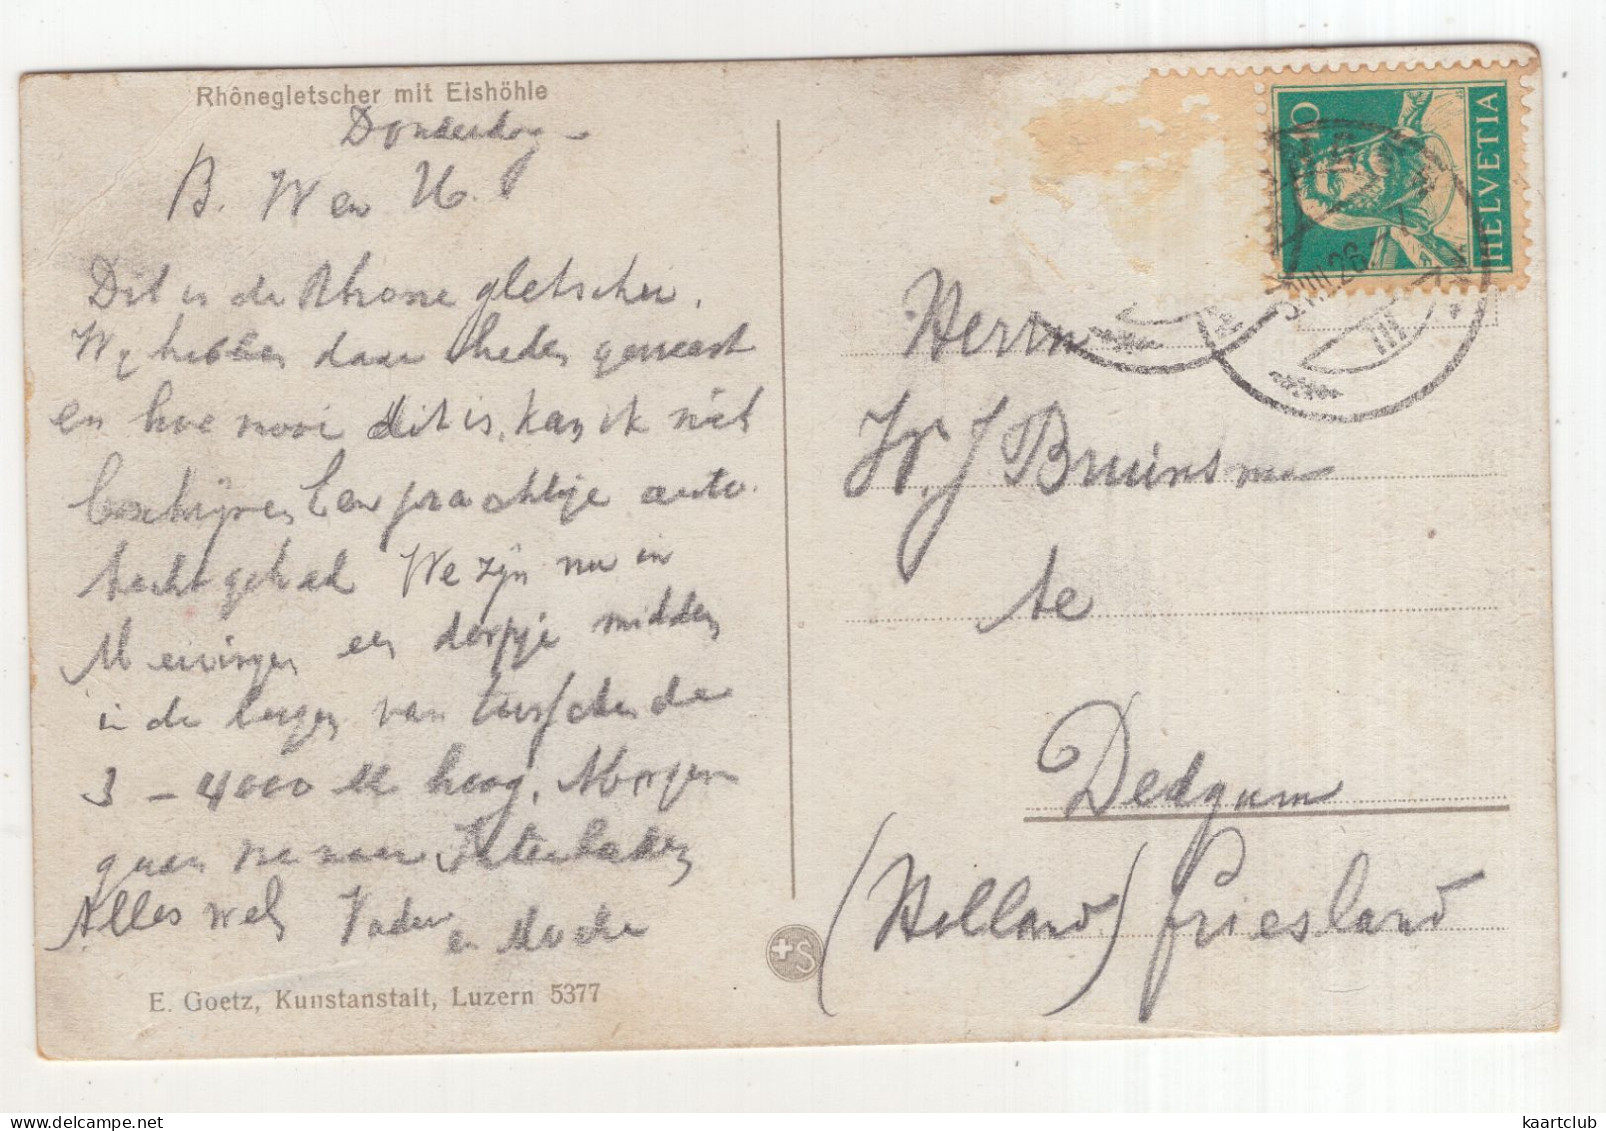 Rhônegletscher mit Eishöhle
Donderdag -
B. W en U.
Dit is de Rhone gletscher.
Wij hebben daar heden geweest
en hoe mooi dit is, kan ik niet
beschrijven Een prachtige auto
tocht gehad We zijn nu in
Meiringen een dorpje midden
in de bergen van tusschen de
3 - 4000 M hoog. Morgen
gaan we naar Interlaken
Alles wel, Vader
en Moeder
E. Goetz, Kunstanstalt, Luzern 5377
+S
10
HELVETIA
VIII.26
III
Herrn
W. J Bruinsma
te
Dedgum
(Holland) Friesland
kaartclub